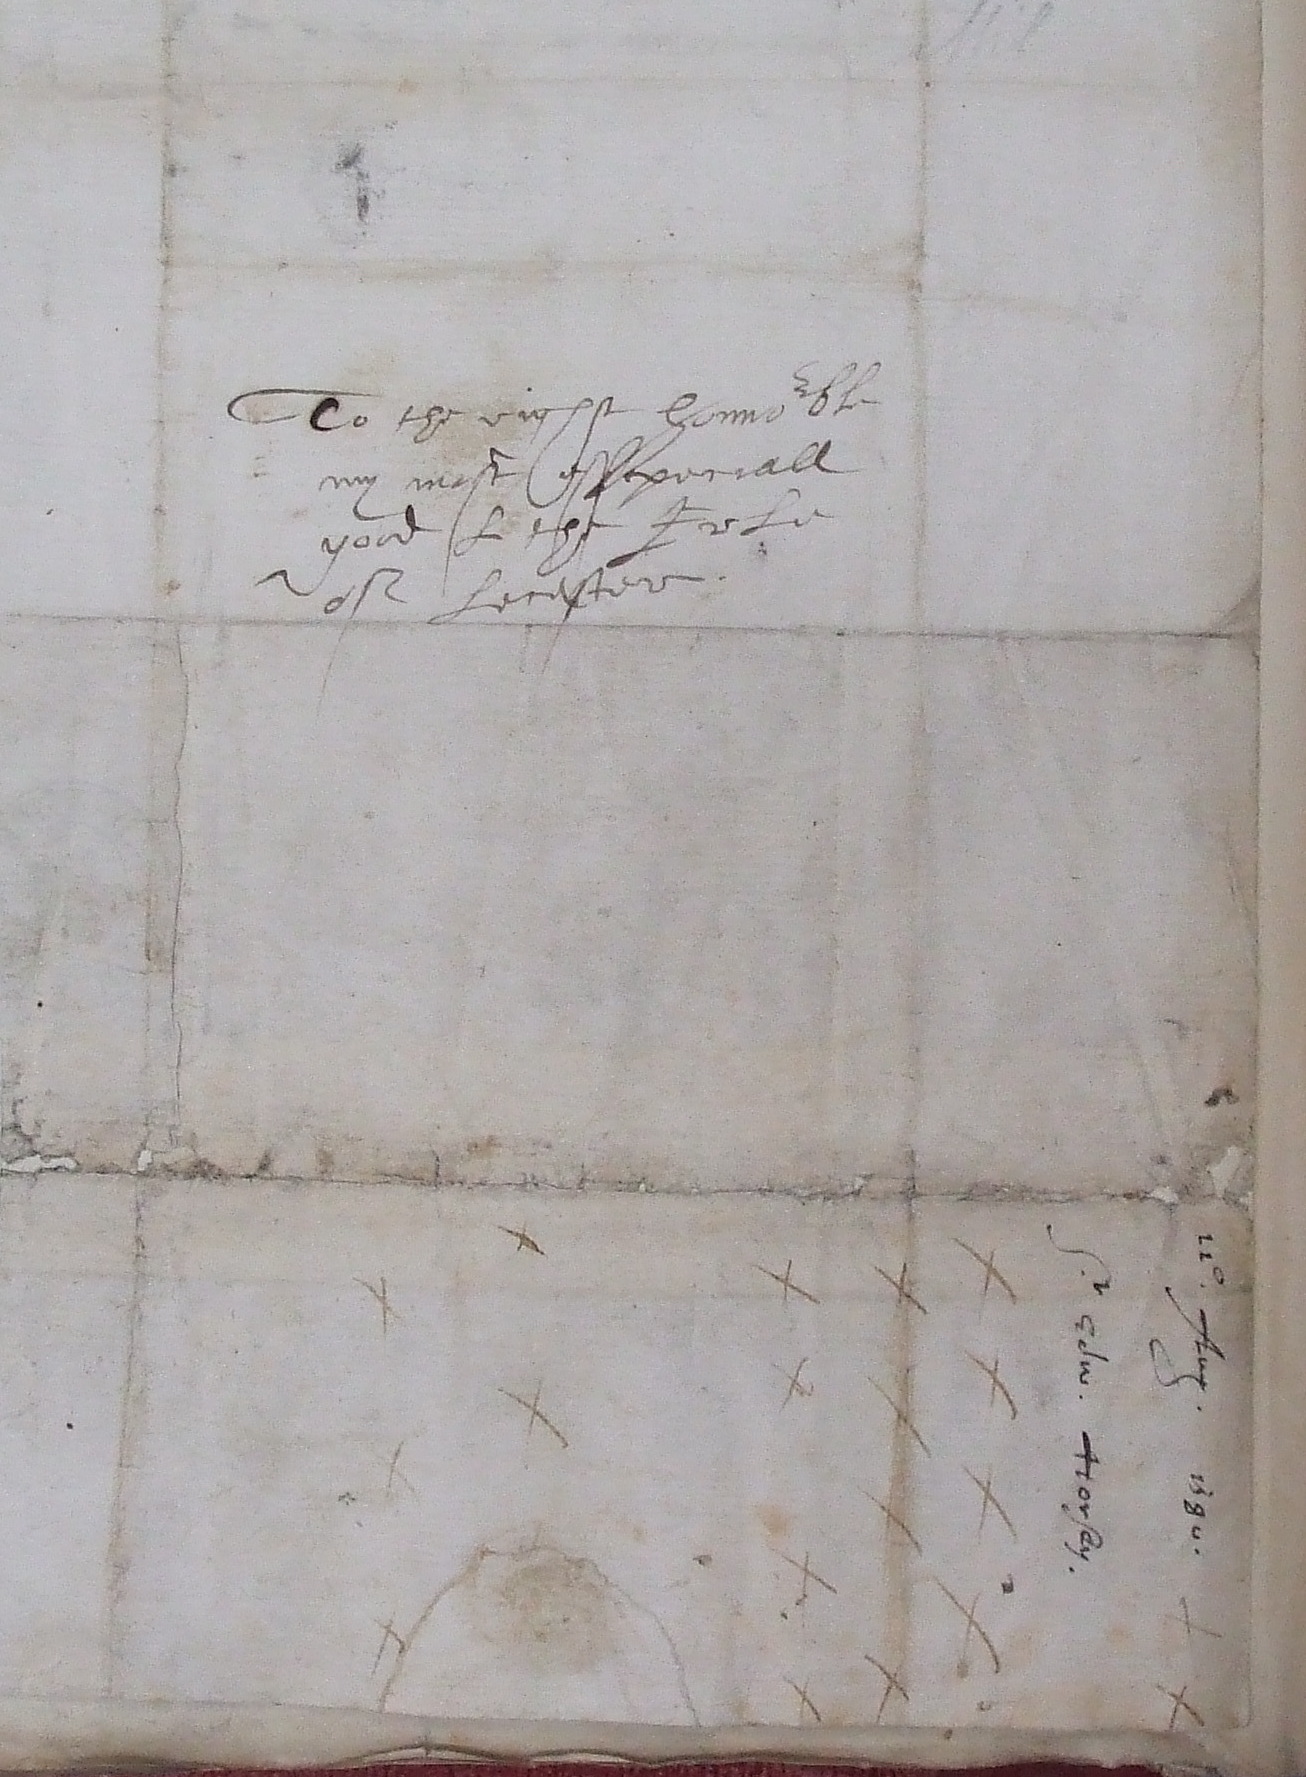 To the right honno^rble
my most Especiall
good L the Erle
off Lecester.
22º. Aug. 1580.
S.^r Edw. Horsey.